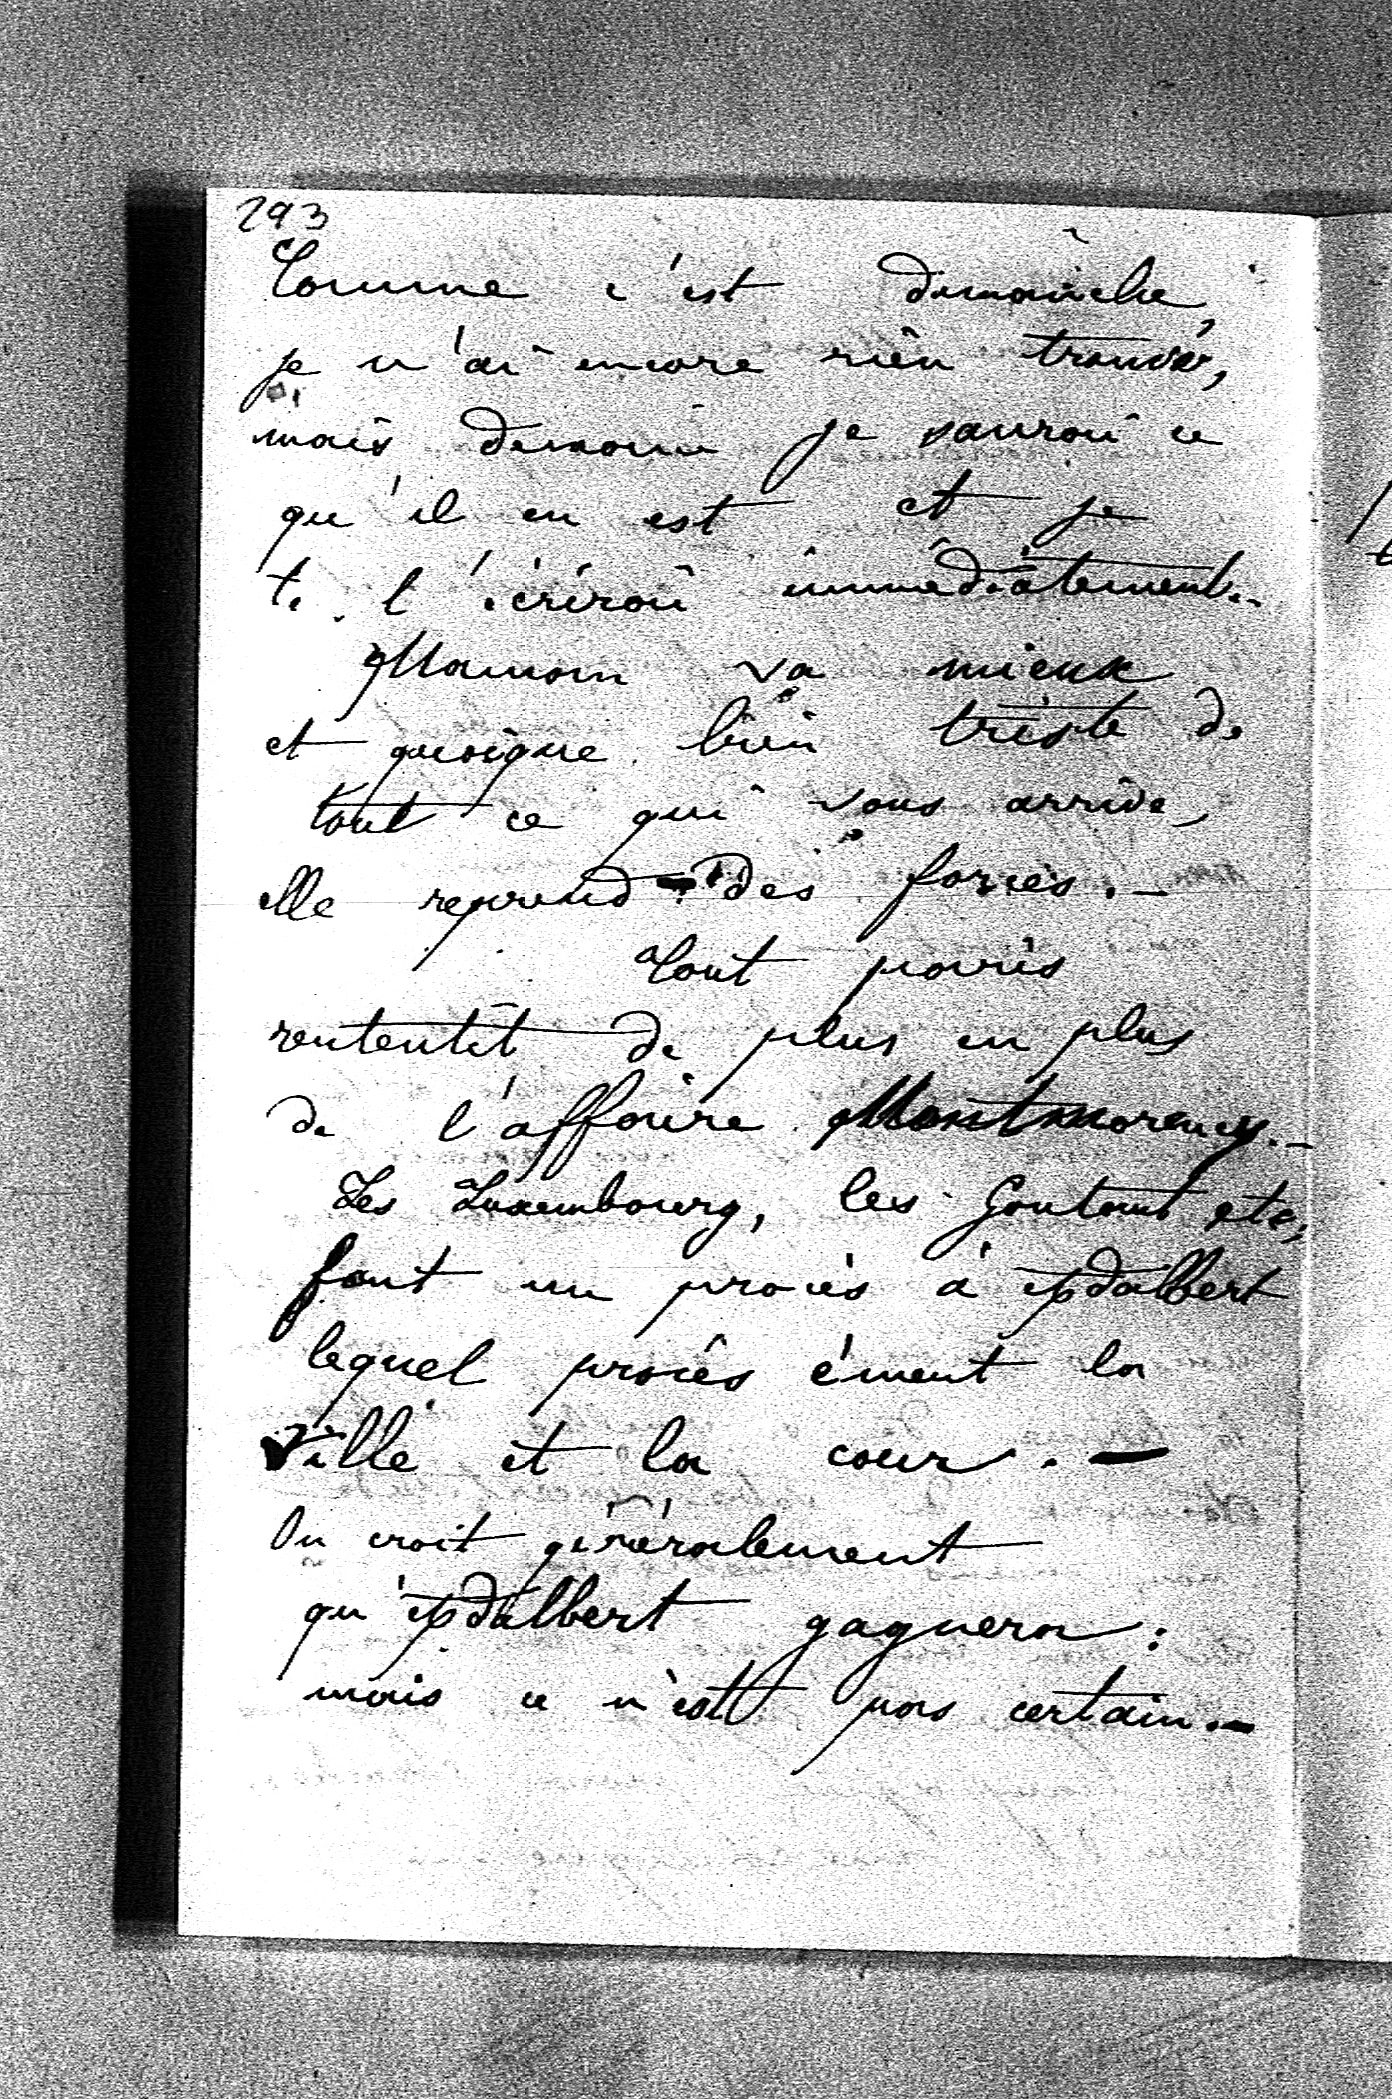 293
Comme c'est dimanche,
je n'ai encore rien trouvé,
mais demain je saurai ce
qu'il en est et je
te l'écrirai immédiatement. -
Maman va mieux
et quoique bien triste de
tout ce qui vous arrive,
elle reprend des forces. -
Tout Paris
retentit de plus en plus
de l'affaire Montmorency. -
Les Luxembourg, les Gontaut etc,
font un procès à Adalbert
lequel procès émeut la
ville et la cour. -
On croit généralement
qu'Adalbert gagnera :
mais ce n'est pas certain. -